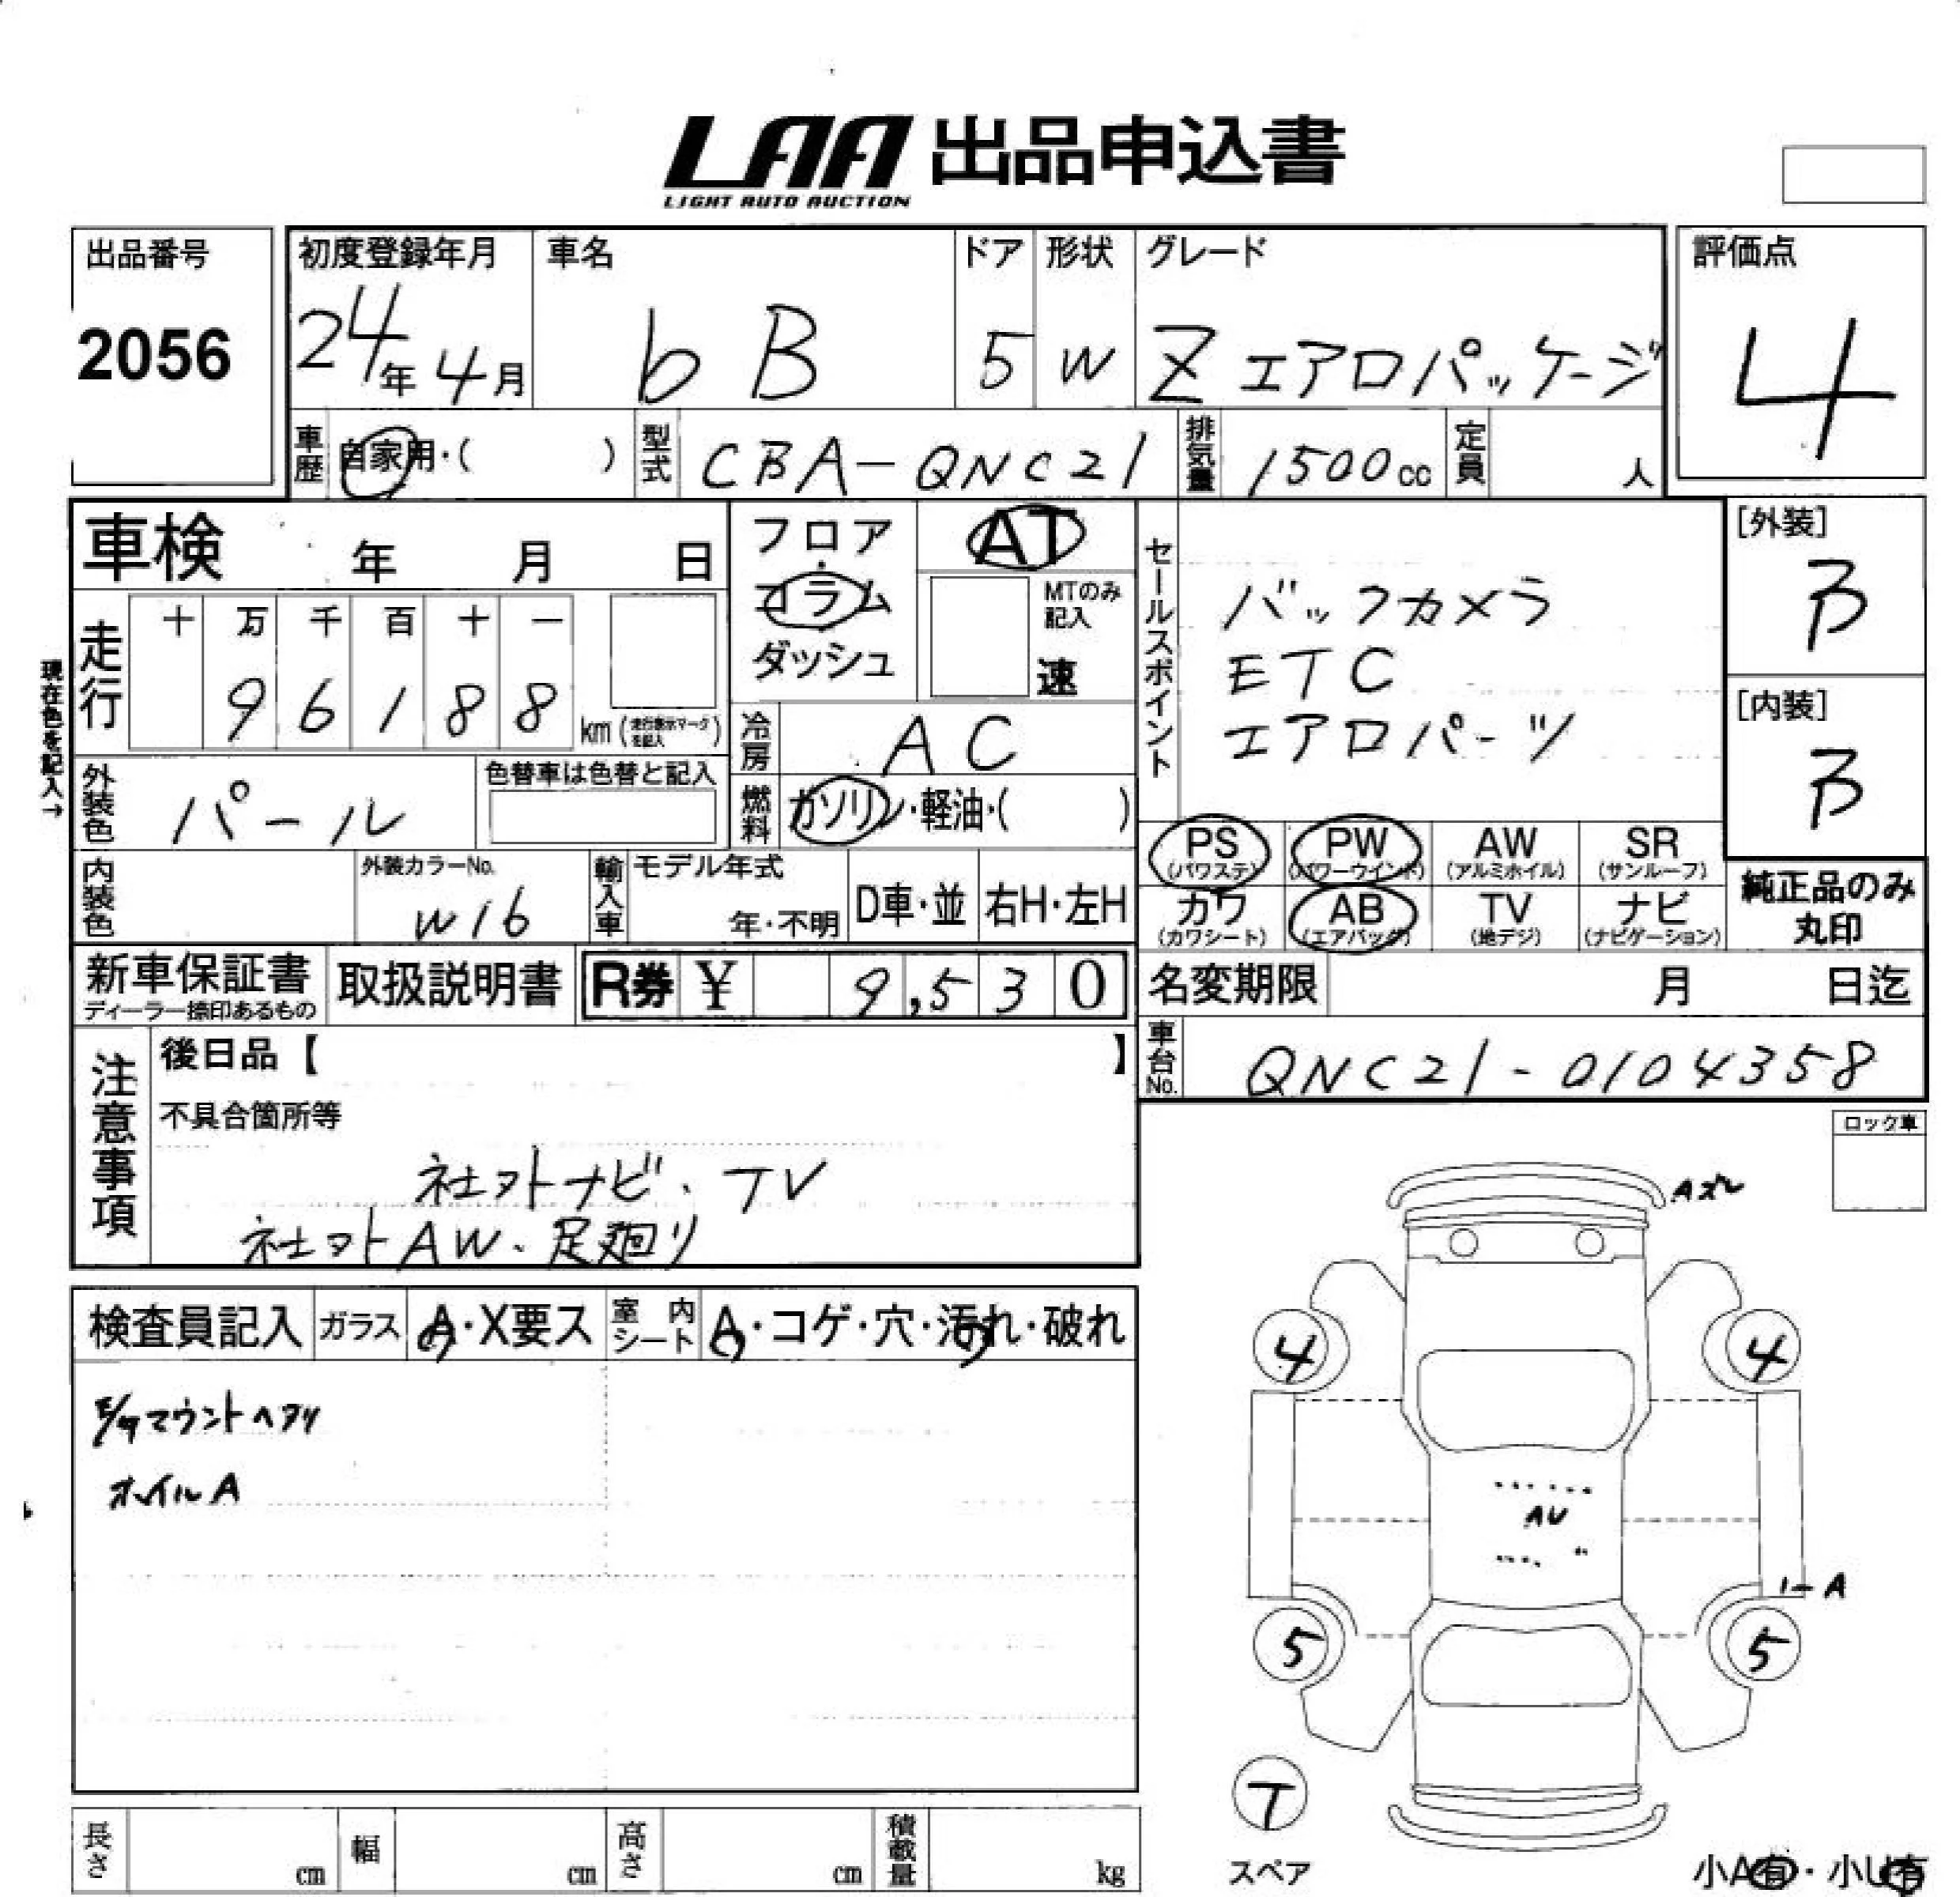 LAA 出品申込書
LIGHT AUTO AUCTION
出品番号 初度登録年月 車名 ドア 形状 グレード 評価点
2056 24年4月 bB 5 W Z エアロパッケージ 4
車歴 自家用・( ) 型式 CBA-QNC21 排気量 1500cc 定員 人
車検 年 月 日
フロア・コラム ダッシュ
AT
MTのみ記入
速
セールスポイント
バックカメラ
ETC
エアロパーツ
[外装]
B
[内装]
B
現在色を記入→
走行 十 万 千 百 十 一
9 6 1 8 8 km (走行表示マークを記入)
冷房 AC
外装色 パール 色替車は色替と記入
燃料 ガソリン・軽油・( )
PS (パワステ) PW (パワーウインド) AW (アルミホイル) SR (サンルーフ)
カワ (カワシート) AB (エアバッグ) TV (地デジ) ナビ (ナビゲーション)
純正品のみ
丸印
内装色 外装カラーNo. W16 輸入車 モデル年式 年・不明 D車・並 右H・左H
新車保証書 ディーラー捺印あるもの 取扱説明書 R券 ¥ 9,530
名変期限 月 日迄
車台No. QNC21-0104358
注意事項
後日品【 】
不具合箇所等
社外ナビ、TV
社外AW、足廻り
ロック車
検査員記入 ガラス A・X要ス 室内シート A・コゲ・穴・汚れ・破れ
マウントヘタリ
ホイルA
Aズレ
4 4
AU
リーA
5 5
T
スペア
小A有・小U有
長さ cm 幅 cm 高さ cm 積載量 kg